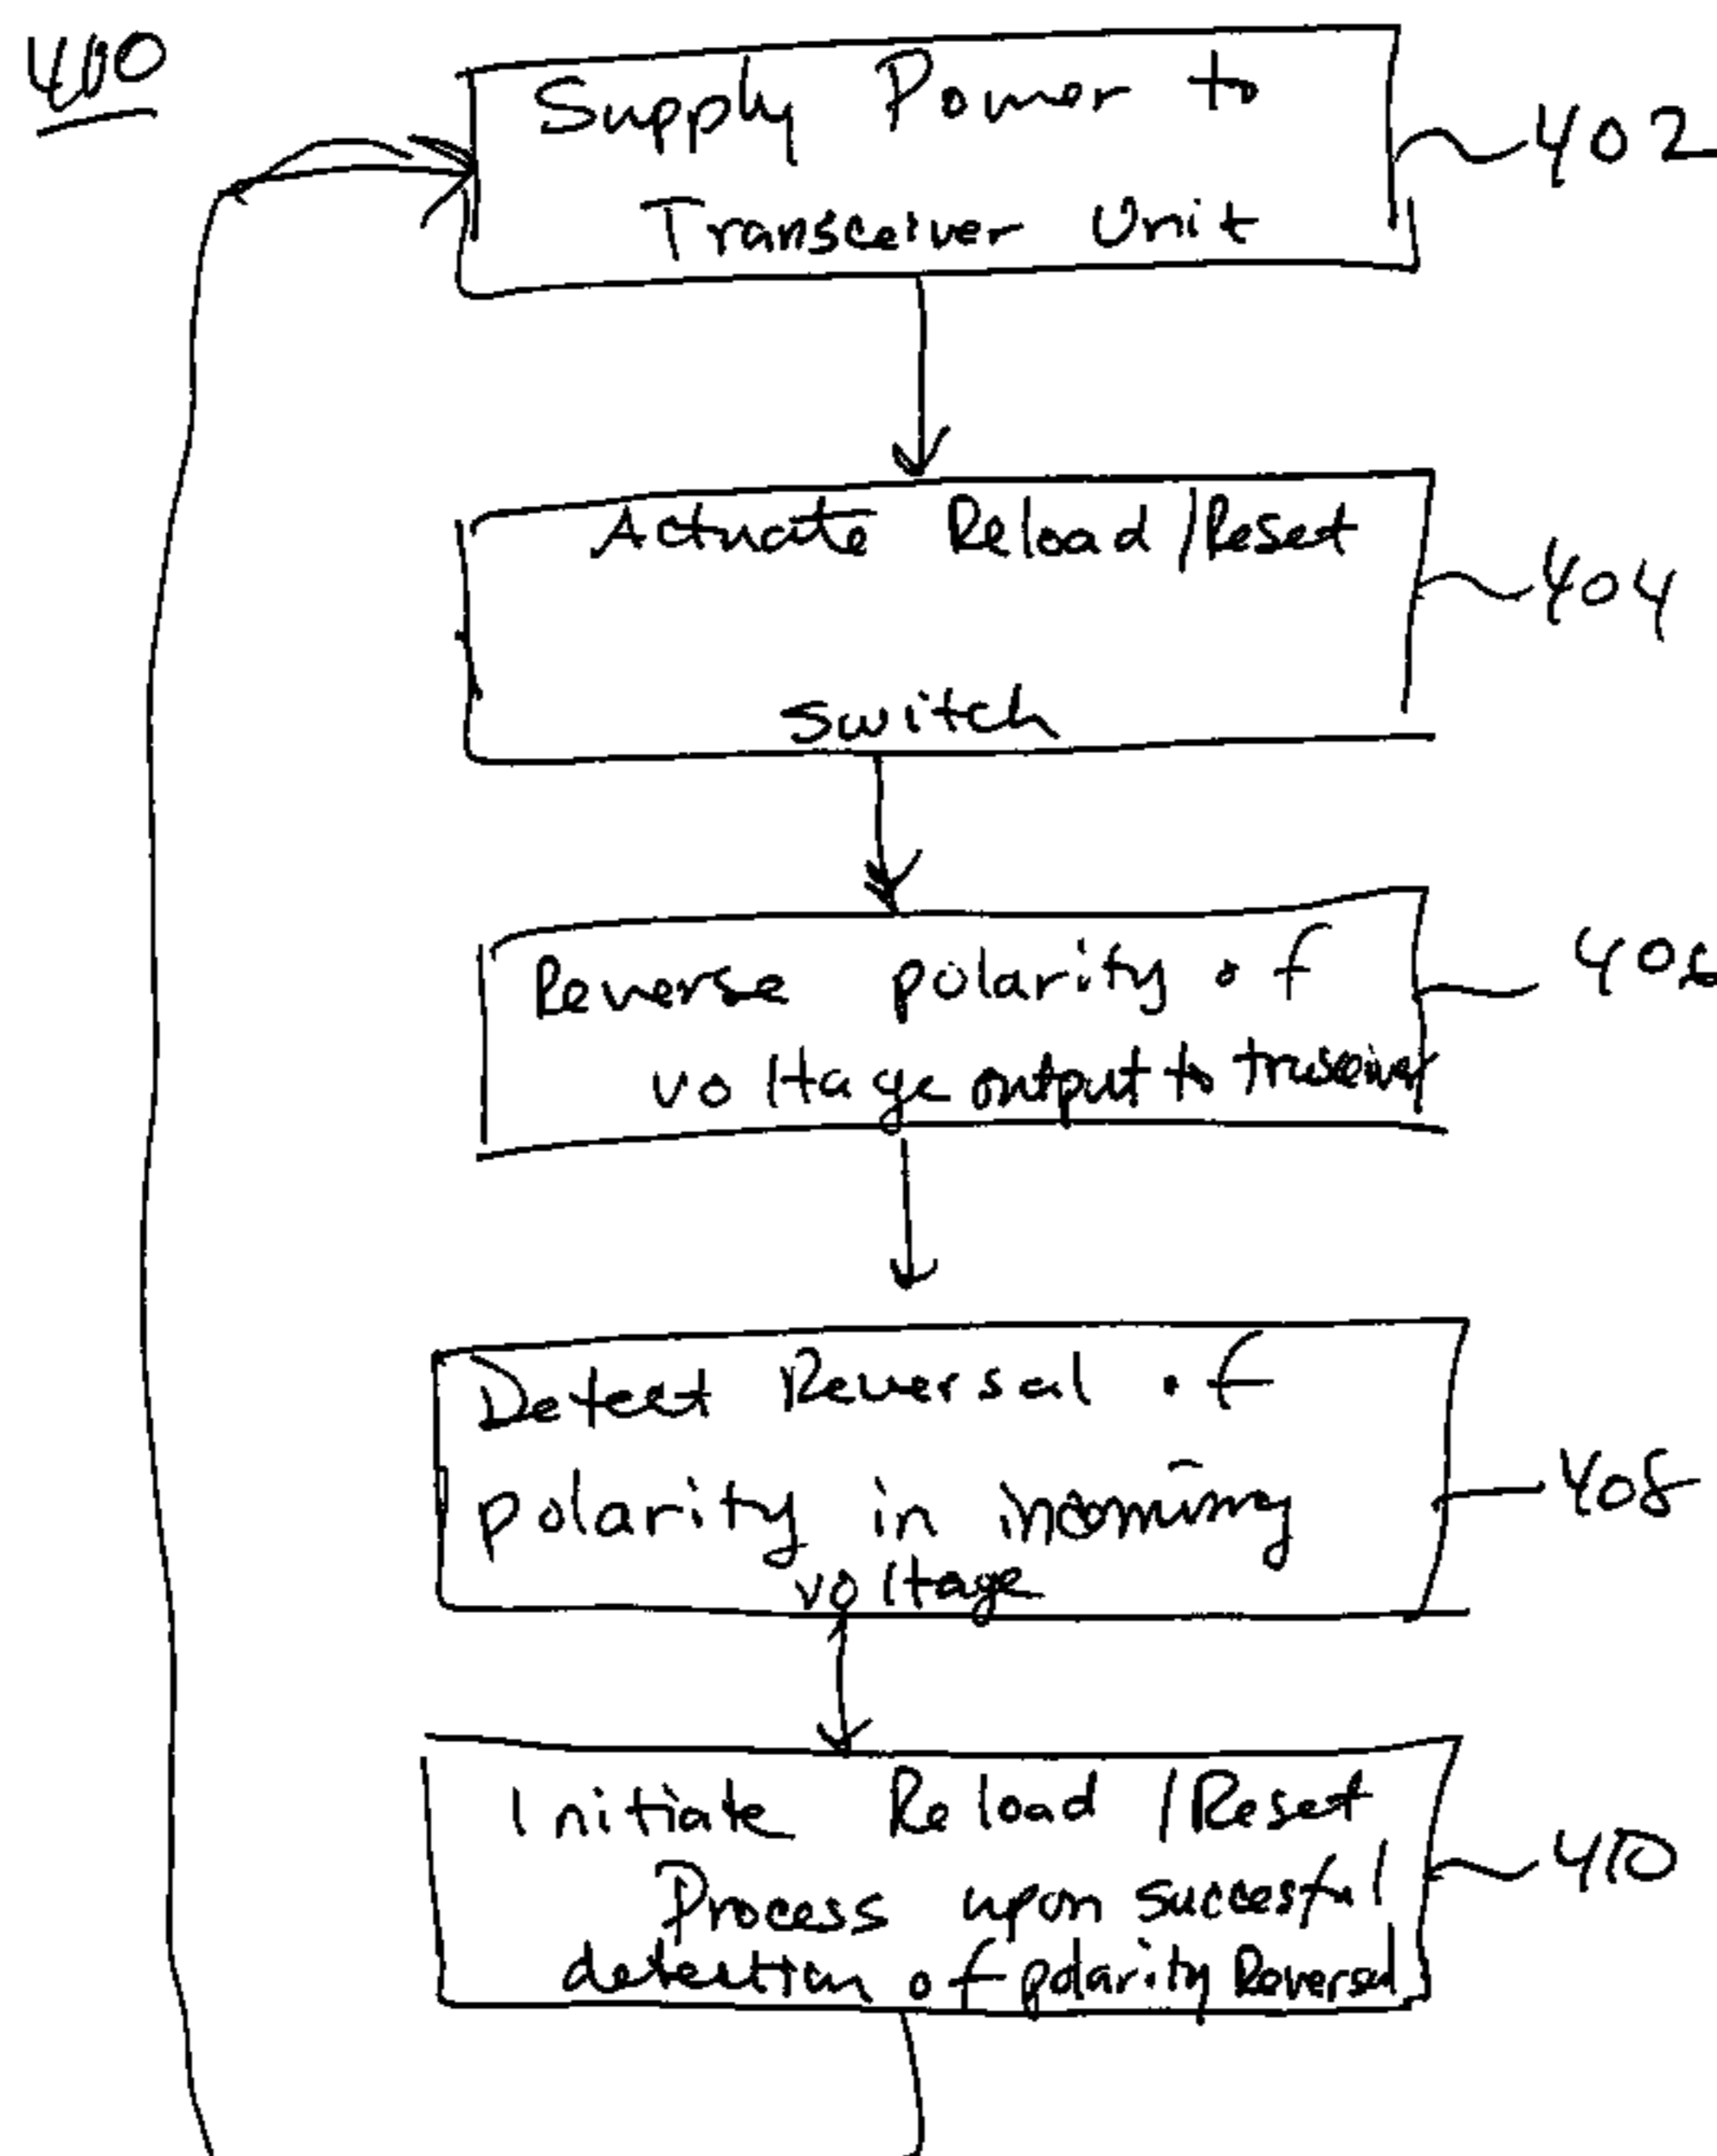 400
Supply Power to
Transceiver Unit
402
Actuate Reload/Reset
switch
404
Reverse polarity of
voltage output to
406
Detect Reversal of
polarity in incoming
voltage
408
Initiate Reload/Reset
Process upon succesful
detection of polarity Reversal
410